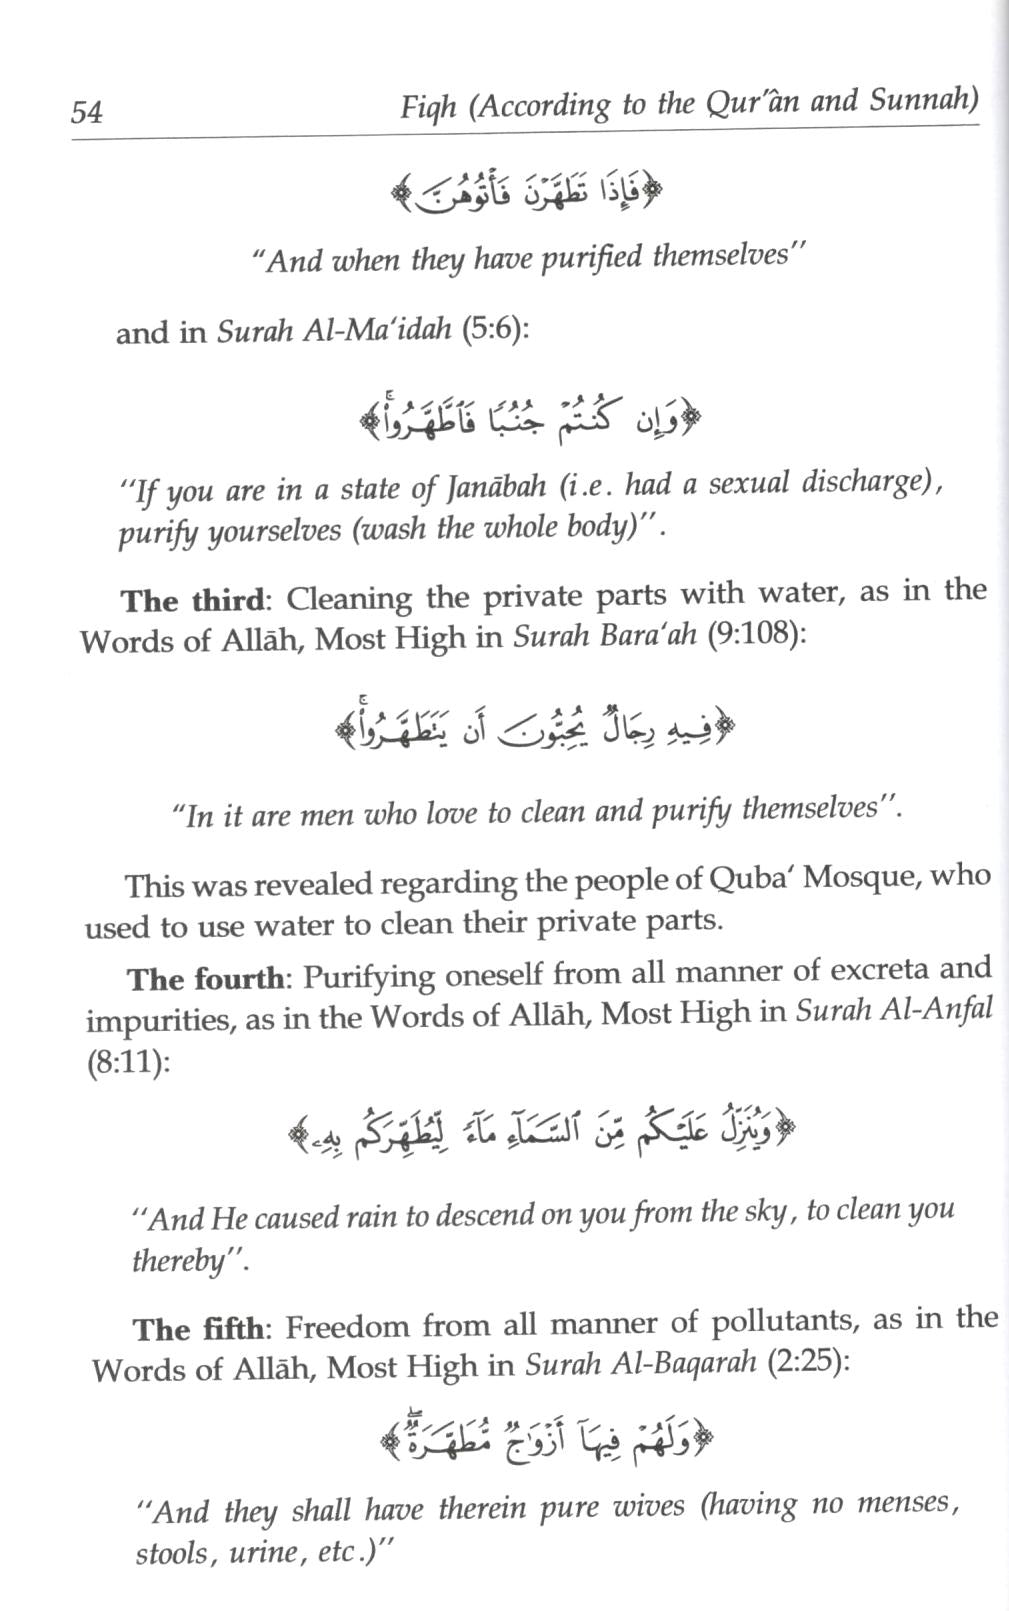 54 Fiqh (According to the Qur'ân and Sunnah)
﴿فَإِذَا تَطَهَّرْنَ فَأْتُوهُنَّ﴾
"And when they have purified themselves"
and in Surah Al-Ma'idah (5:6):
﴿وَإِن كُنتُمْ جُنُبًا فَاطَّهَّرُوا۟ۚ﴾
"If you are in a state of Janābah (i.e. had a sexual discharge),
purify yourselves (wash the whole body)".
The third: Cleaning the private parts with water, as in the
Words of Allāh, Most High in Surah Bara'ah (9:108):
﴿فِيهِ رِجَالٌ يُحِبُّونَ أَن يَتَطَهَّرُوا۟ۚ﴾
"In it are men who love to clean and purify themselves".
This was revealed regarding the people of Quba' Mosque, who
used to use water to clean their private parts.
The fourth: Purifying oneself from all manner of excreta and
impurities, as in the Words of Allāh, Most High in Surah Al-Anfal
(8:11):
﴿وَيُنَزِّلُ عَلَيْكُم مِّنَ ٱلسَّمَآءِ مَآءً لِّيُطَهِّرَكُم بِهِۦ﴾
"And He caused rain to descend on you from the sky, to clean you
thereby".
The fifth: Freedom from all manner of pollutants, as in the
Words of Allāh, Most High in Surah Al-Baqarah (2:25):
﴿وَلَهُمْ فِيهَآ أَزْوَٰجٌ مُّطَهَّرَةٌۖ﴾
"And they shall have therein pure wives (having no menses,
stools, urine, etc.)"